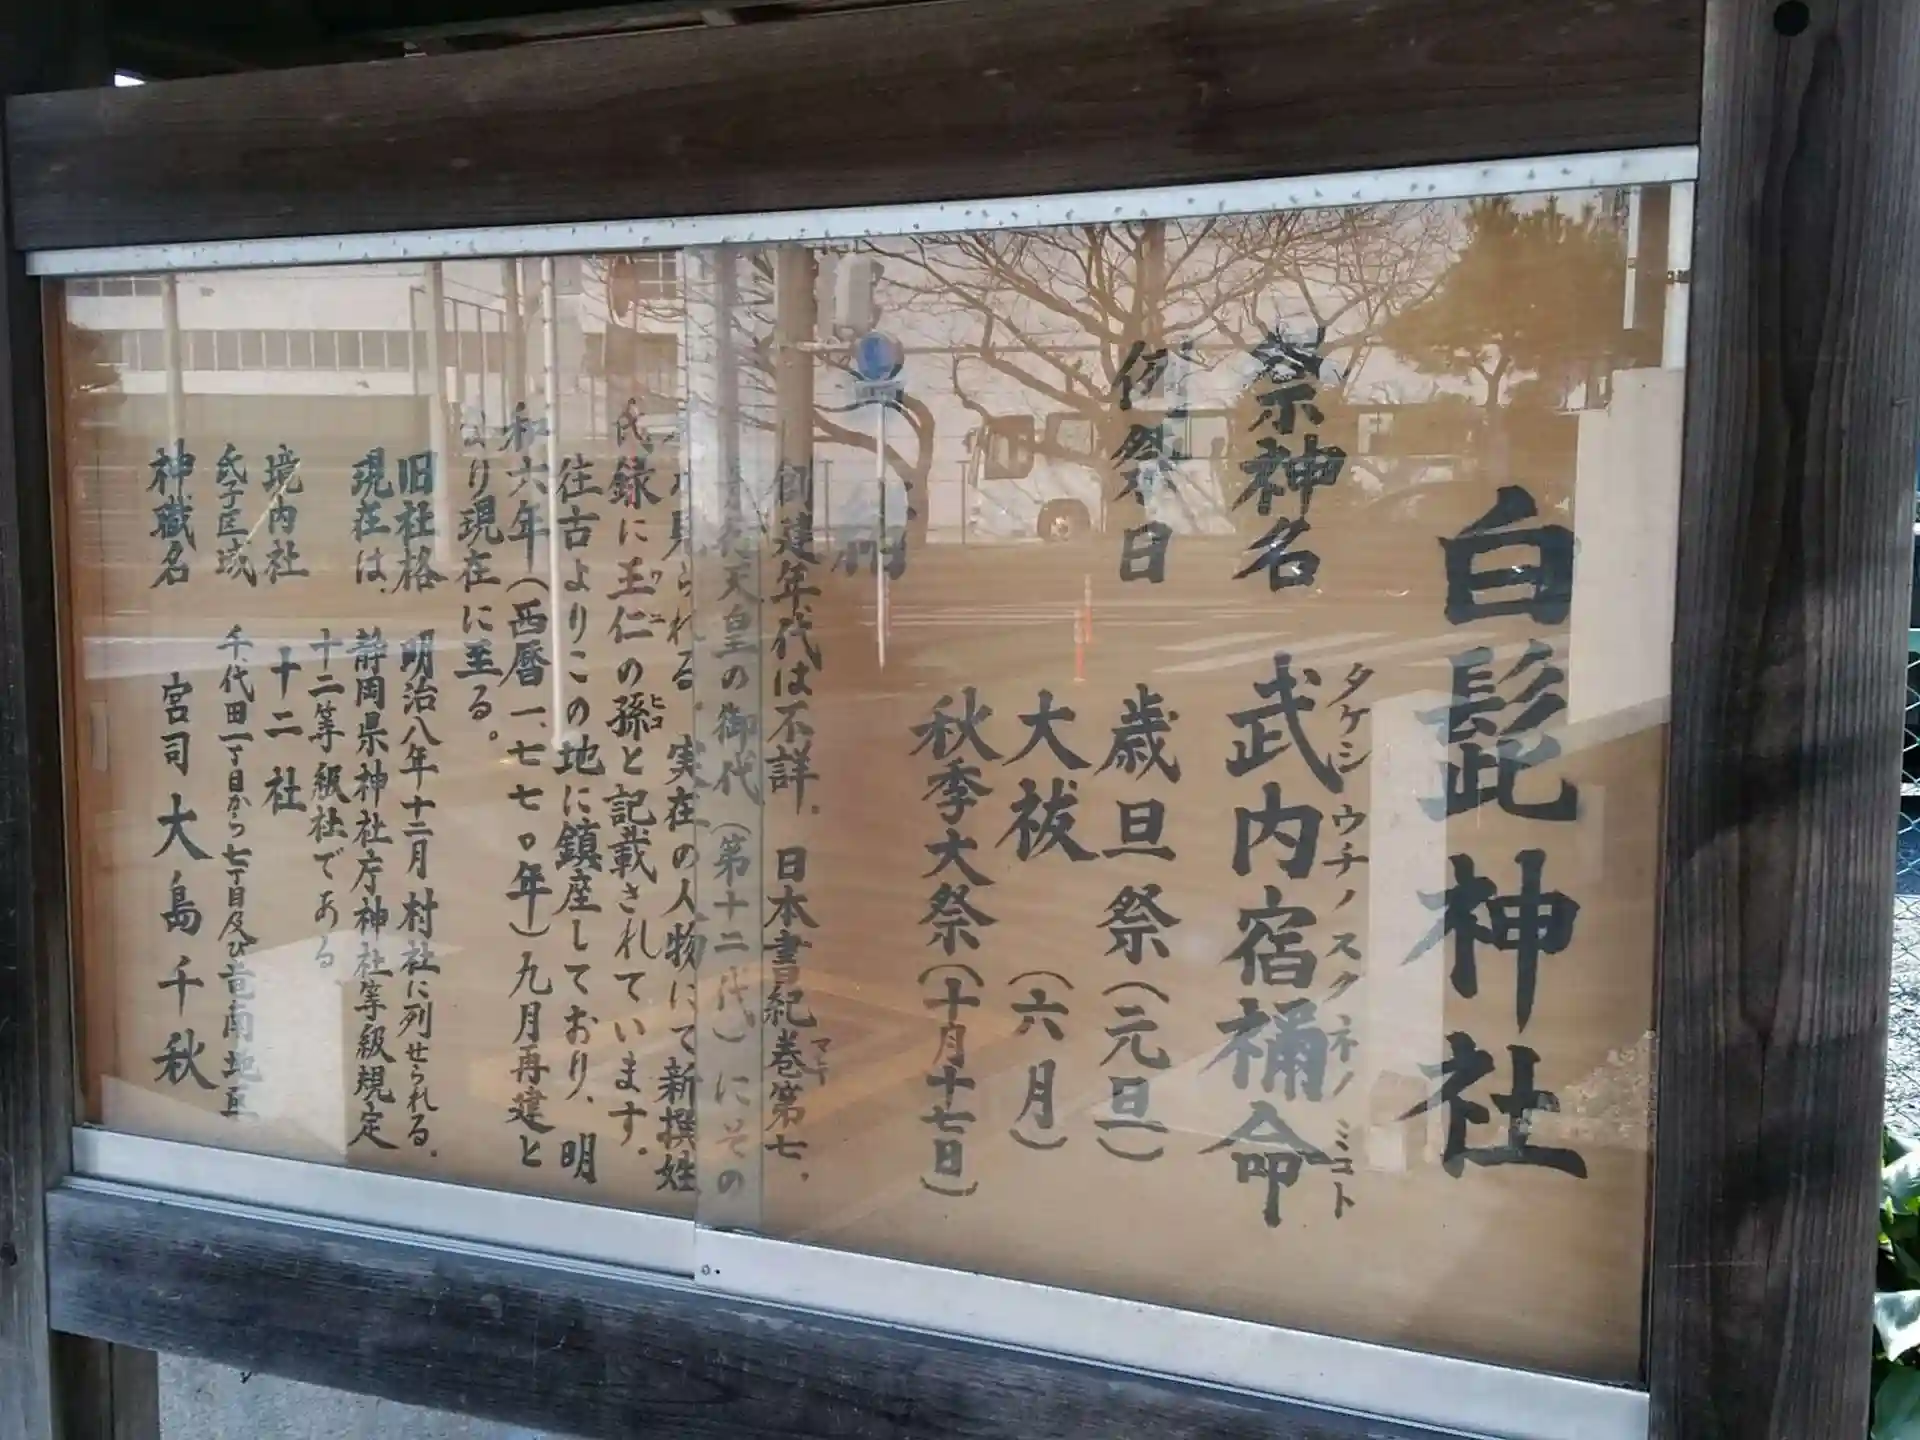 白髭神社
祭神名 武内宿禰命
タケシ ウチノスクネノミコト
例祭日 歳旦祭(元旦)
大祓 (六月)
秋季大祭(十月十七日)
創建年代は不詳. 日本書紀巻第七.
マキ
天皇の御代(第十二代)にその
見られる. 実在の人物にて新撰姓
氏録に王仁の孫と記載されています.
ワニ ヒコ
往古よりこの地に鎮座しており、明
和六年(西暦一、七七〇年)九月再建と
より現在に至る。
旧社格 明治八年十二月村社に列せられる.
現在は、静岡県神社庁神社等級規定
十二等級社である
境内社 十二社
氏子区域 千代田一丁目から七丁目及び竜南地区
神職名 宮司 大島千秋